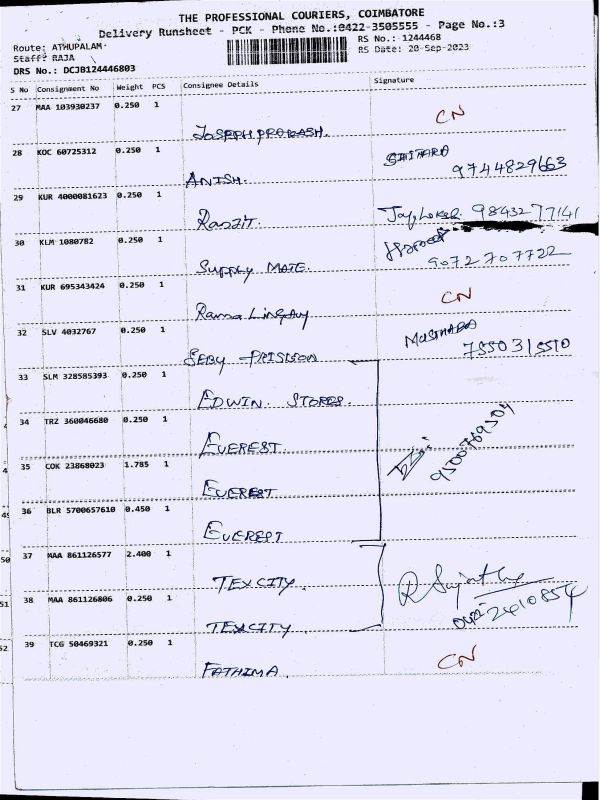 THE PROFESSIONAL COURIERS, COIMBATORE
Delivery Runsheet - PCK - Phone No.:0422-3505555 - Page No.:3
Route: ATHUPALAM
RS No.: 1244468
Staff: RAJA
RS Date: 20-Sep-2023
DRS No.: DCJB124446803
S No Consignment No Weight PCS Consignee Details Signature
27 MAA 103930237 0.250 1 CN
JOSEPH PRAKASH.
28 KOC 60725312 0.250 1
ANISH 9744829663
29 KUR 4000081623 0.250 1
98432 77141
30 KLM 1080782 0.250 1
SUPPLY MATE. 9072707722
31 KUR 695343424 0.250 1 CN
Rama
32 SLV 4032767 0.250 1
SEBY 7550315510
33 SLM 328585393 0.250 1
EDWIN. STORES.
34 TRZ 360046680 0.250 1
EVEREST. 9500769504
35 COK 23868023 1.785 1
EVEREST
36 BLR 5700657610 0.450 1
EVEREST
37 MAA 861126577 2.400 1
TEXCITY.
38 MAA 861126806 0.250 1
TEXCITY. 0422-2410854
39 TCG 50469321 0.250 1 CN
FATHIMA.